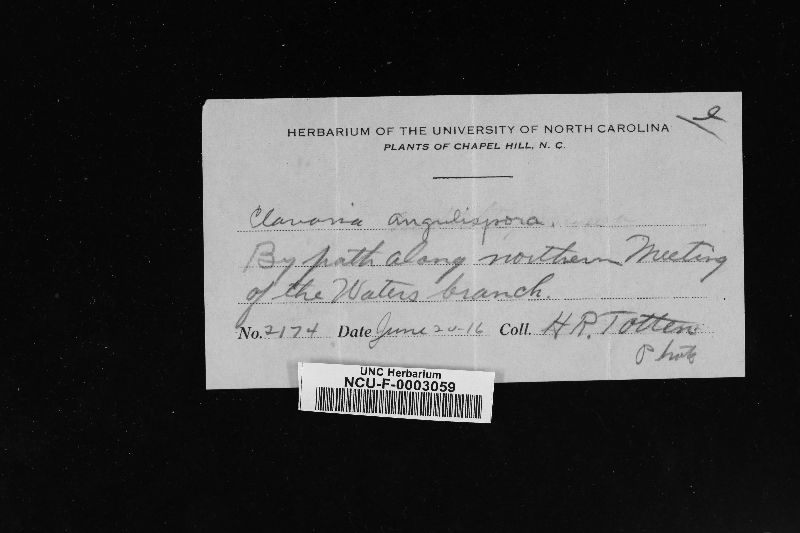 HERBARIUM OF THE UNIVERSITY OF NORTH CAROLINA
PLANTS OF CHAPEL HILL, N. C.
Clavaria angulispora.
By path along northern Meeting
of the Waters branch.
No. 2174 Date June 20-16 Coll. H. R. Totten
Photo
UNC Herbarium
NCU-F-0003059